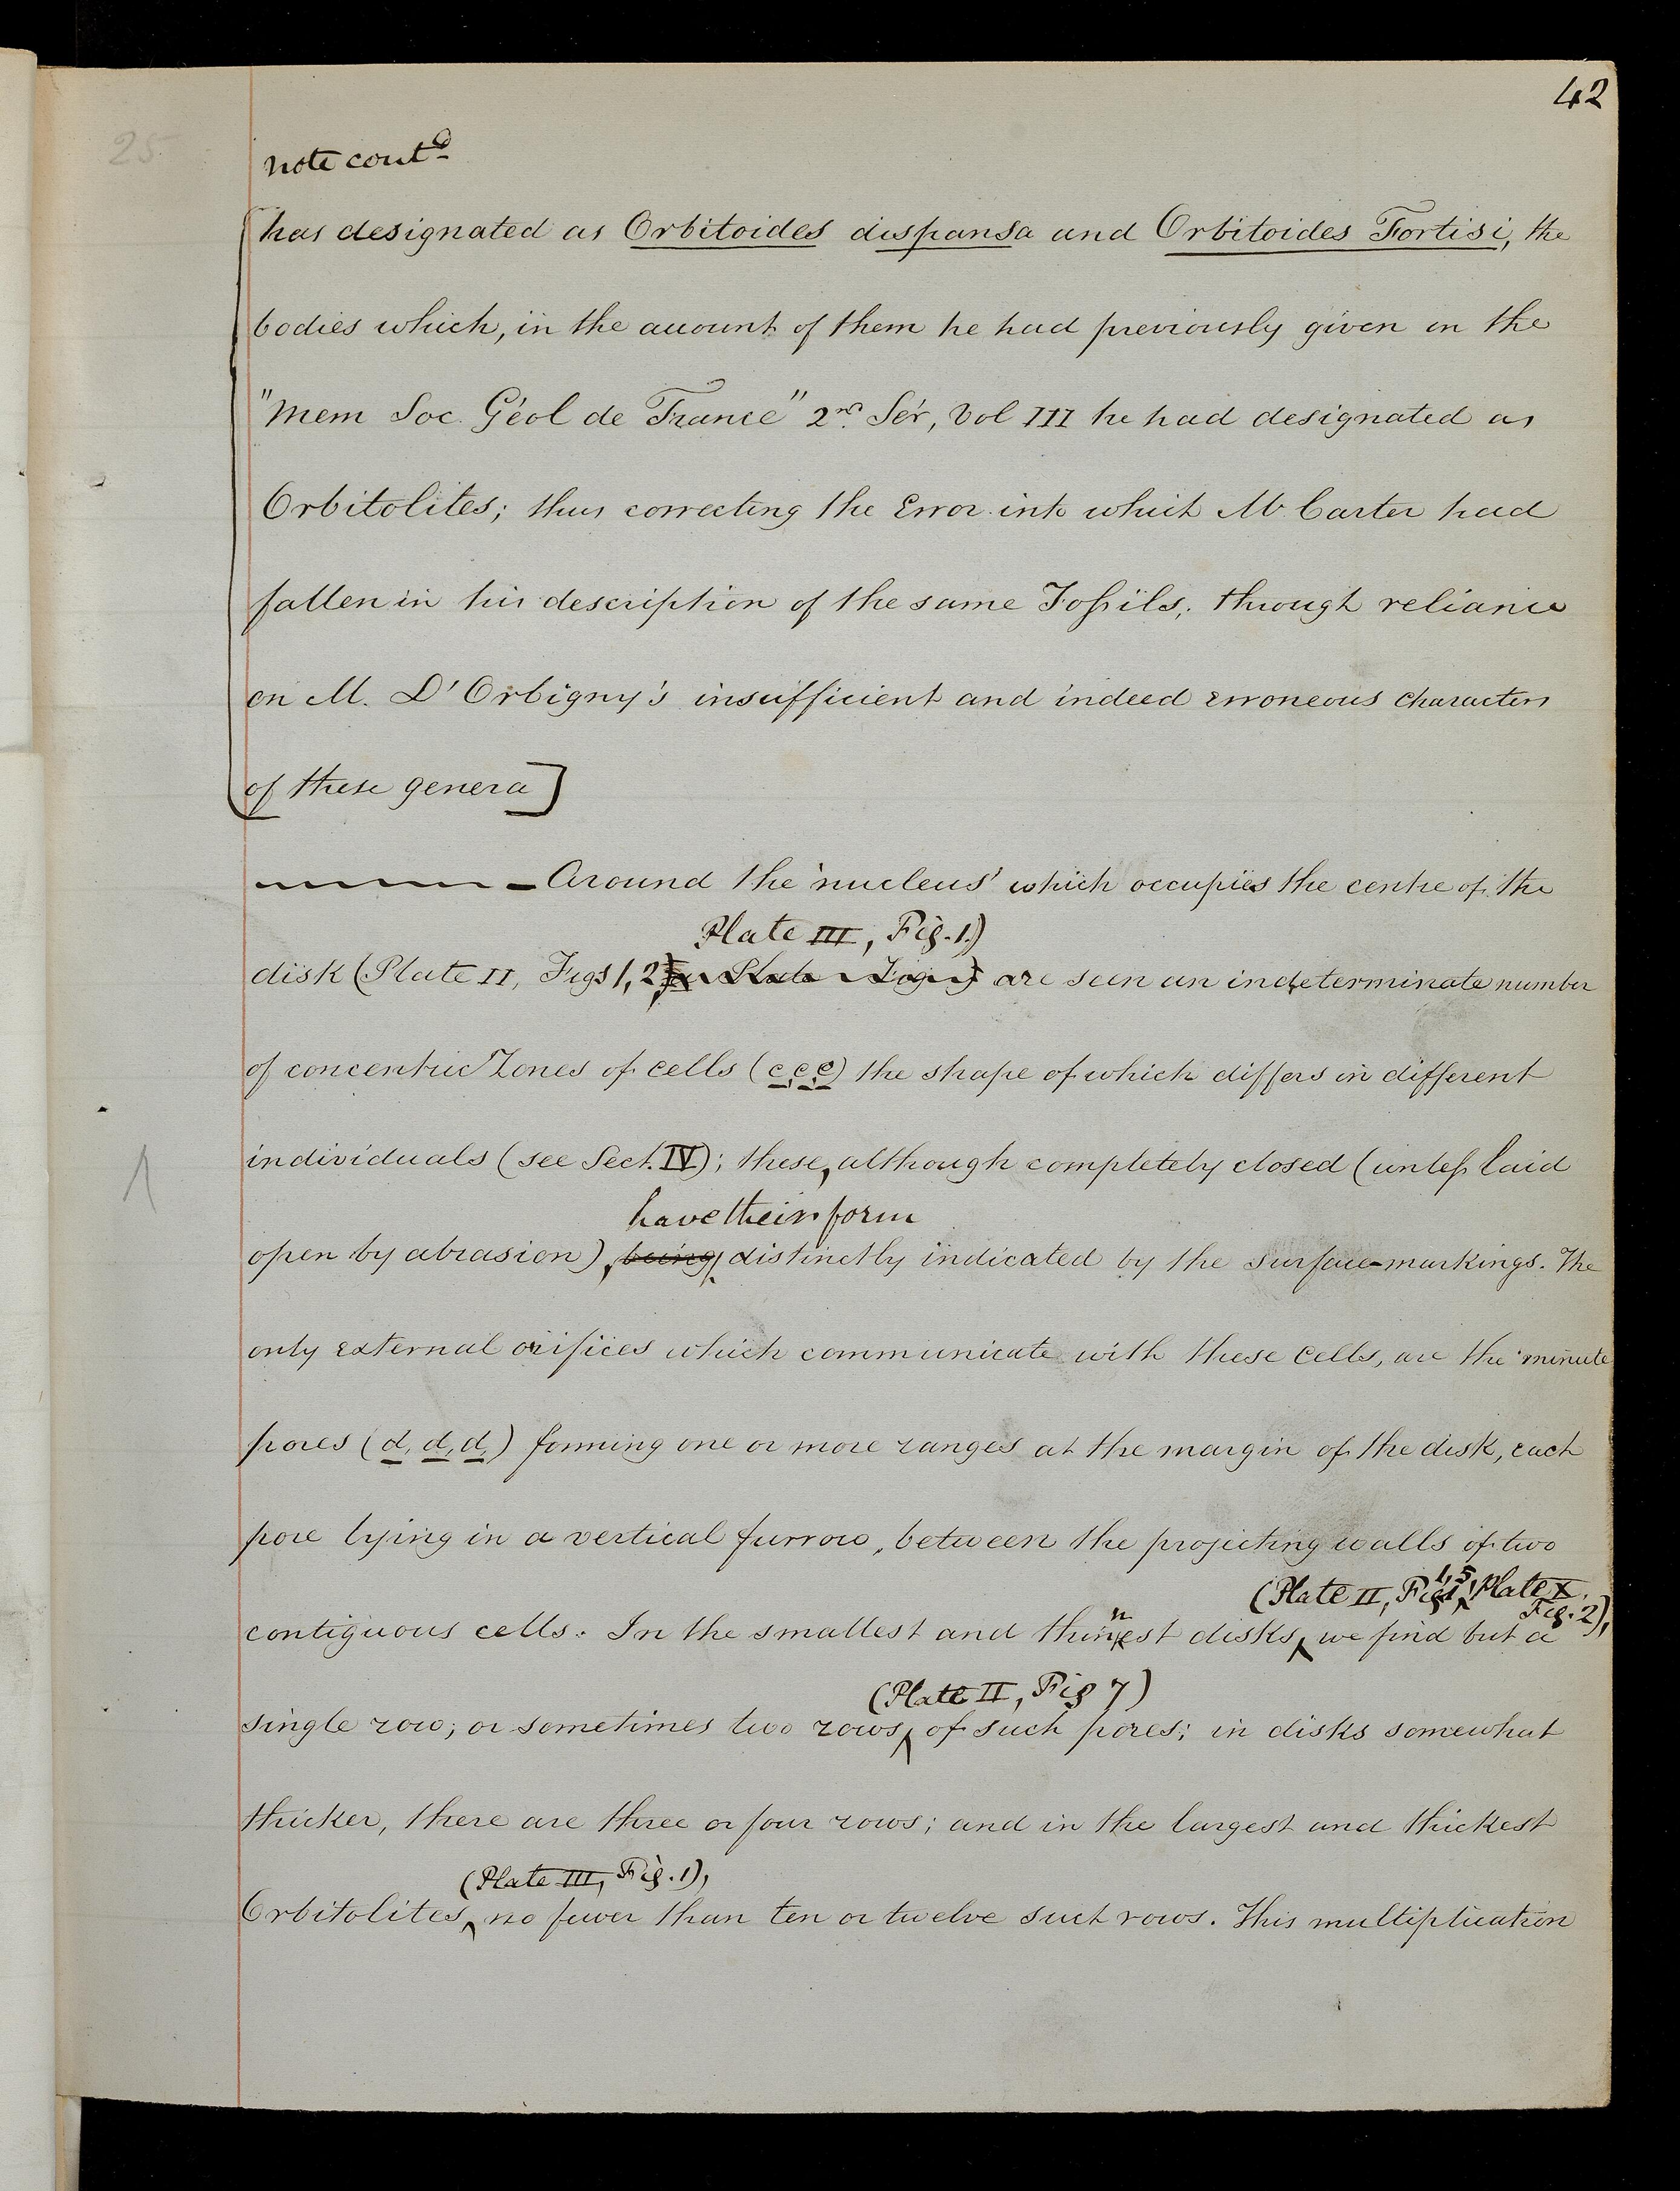 42
25
note contd
[has designated as Orbitoides dispansa and Orbitoides Fortisi, the
bodies which, in the account of them he had previously given in the
"Mem Soc. Géol de France" 2nd Sér, Vol III he had designated as
Orbitolites; thus correcting the Error into which Mr Carter had
fallen in his description of the same Fossils, through reliance
on M. D'Orbigny's insufficient and indeed erroneous characters
of these genera]
Around the 'nucleus' which occupies the centre of the
Plate III, Fig. 1.)
disk (Plate II, Figs 1, 2, are seen an indeterminate number
of concentric Zones of cells (c, c, c) the shape of which differs in different
individuals (see Sect. IV); these, although completely closed (unless laid
have their form
open by abrasion), being distinctly indicated by the surface-markings. The
only external orifices which communicate with these cells, are the minute
pores (d, d, d,) forming one or more ranges at the margin of the disk, each
pore lying in a vertical furrow, between the projecting walls of two
(Plate II, Fig 1, 5, Plate X, Fig. 2),
contiguous cells. In the smallest and thinnest disks, we find but a
(Plate II, Fig 7)
single row; or sometimes two rows, of such pores; in disks somewhat
thicker, there are three or four rows; and in the largest and thickest
(Plate III, Fig. 1),
Orbitolites, no fewer than ten or twelve such rows. This multiplication